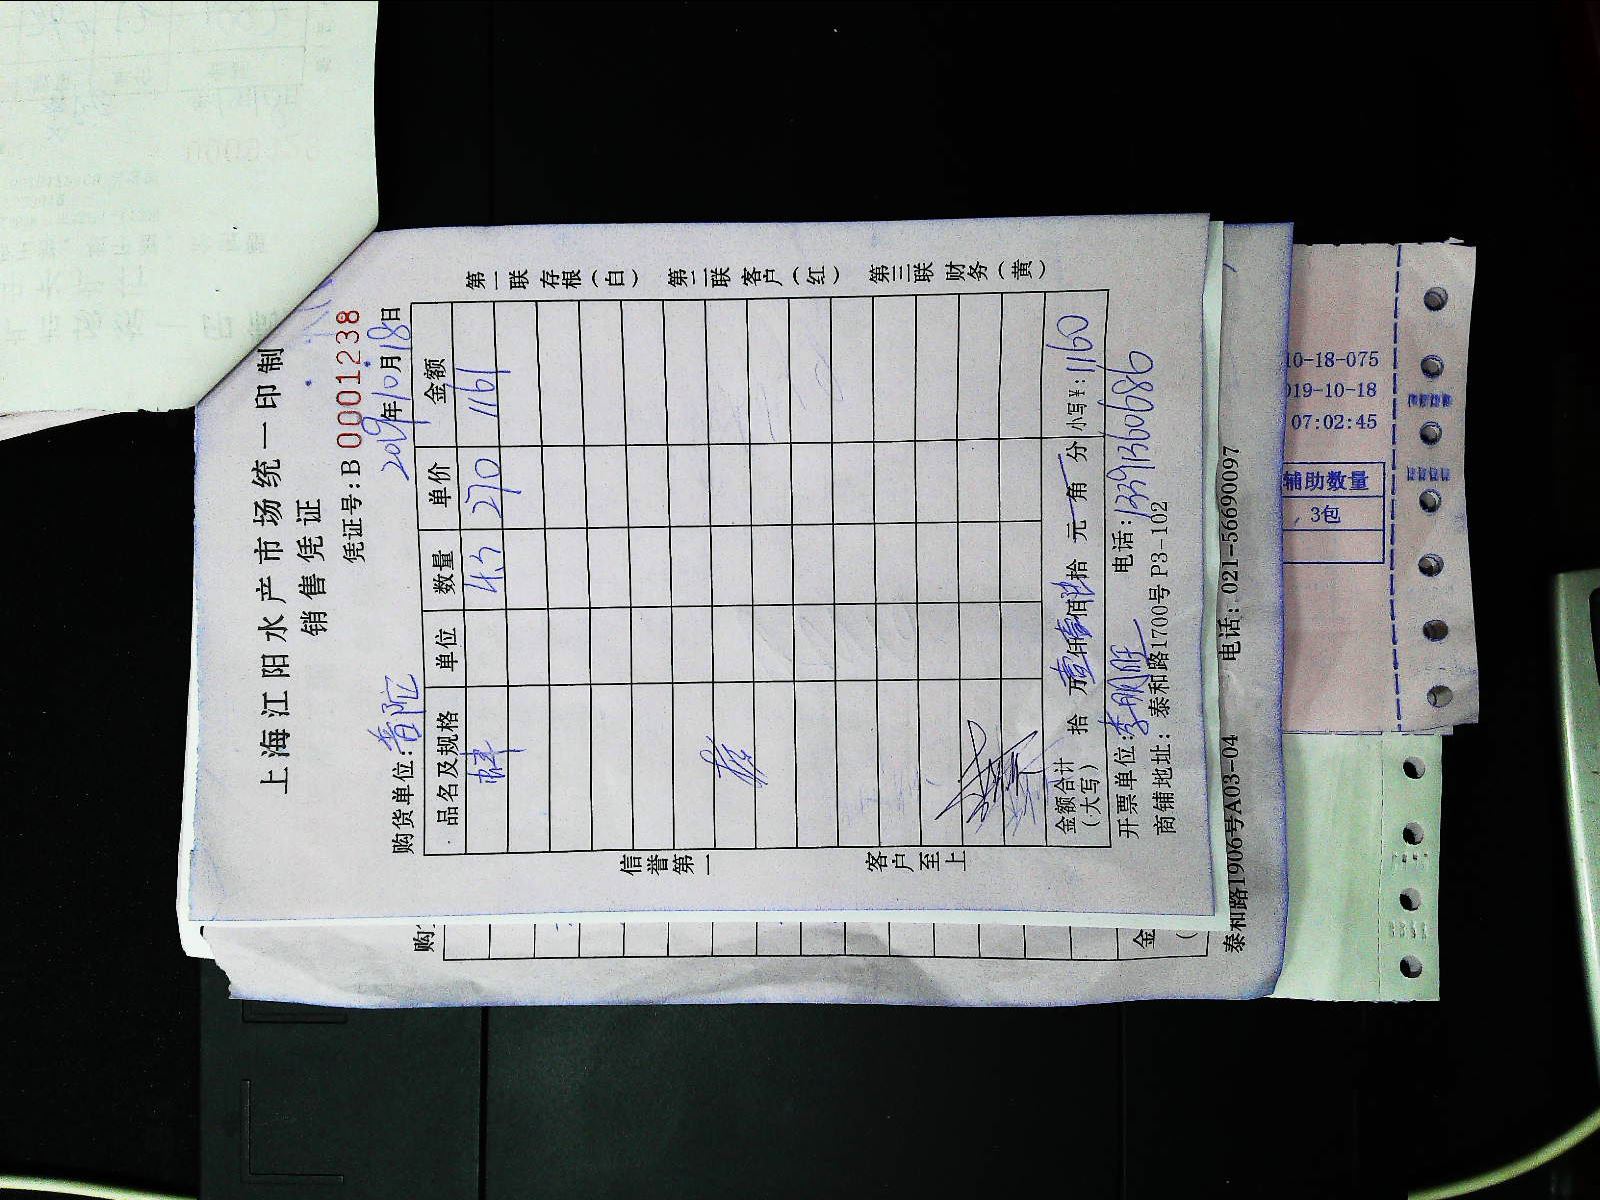 上海江阳水产市场统一印制
销售凭证
凭证号:B 0001238
购货单位:普陀 2019年10月18日
品名及规格 单位 数量 单价 金额
4.3 270 1161
金额合计(大写) 拾 万壹仟壹佰陆拾 元 角 分 小写¥:1160
开票单位:李朋胜 电话:13391360686
商铺地址:泰和路1700号P3-102
信誉第一 客户至上
第一联存根(白) 第二联客户(红) 第三联财务(黄)
泰和路1906号A03-04 电话:021-56690097
购
金
(
10-18-075
019-10-18
07:02:45
辅助数量
3包